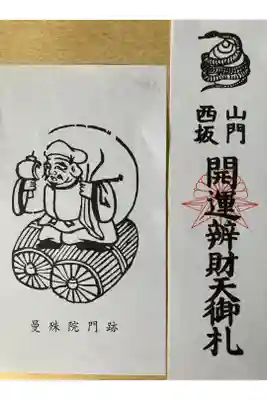 曼殊院門跡
山門
西坂
開運辨財天御札